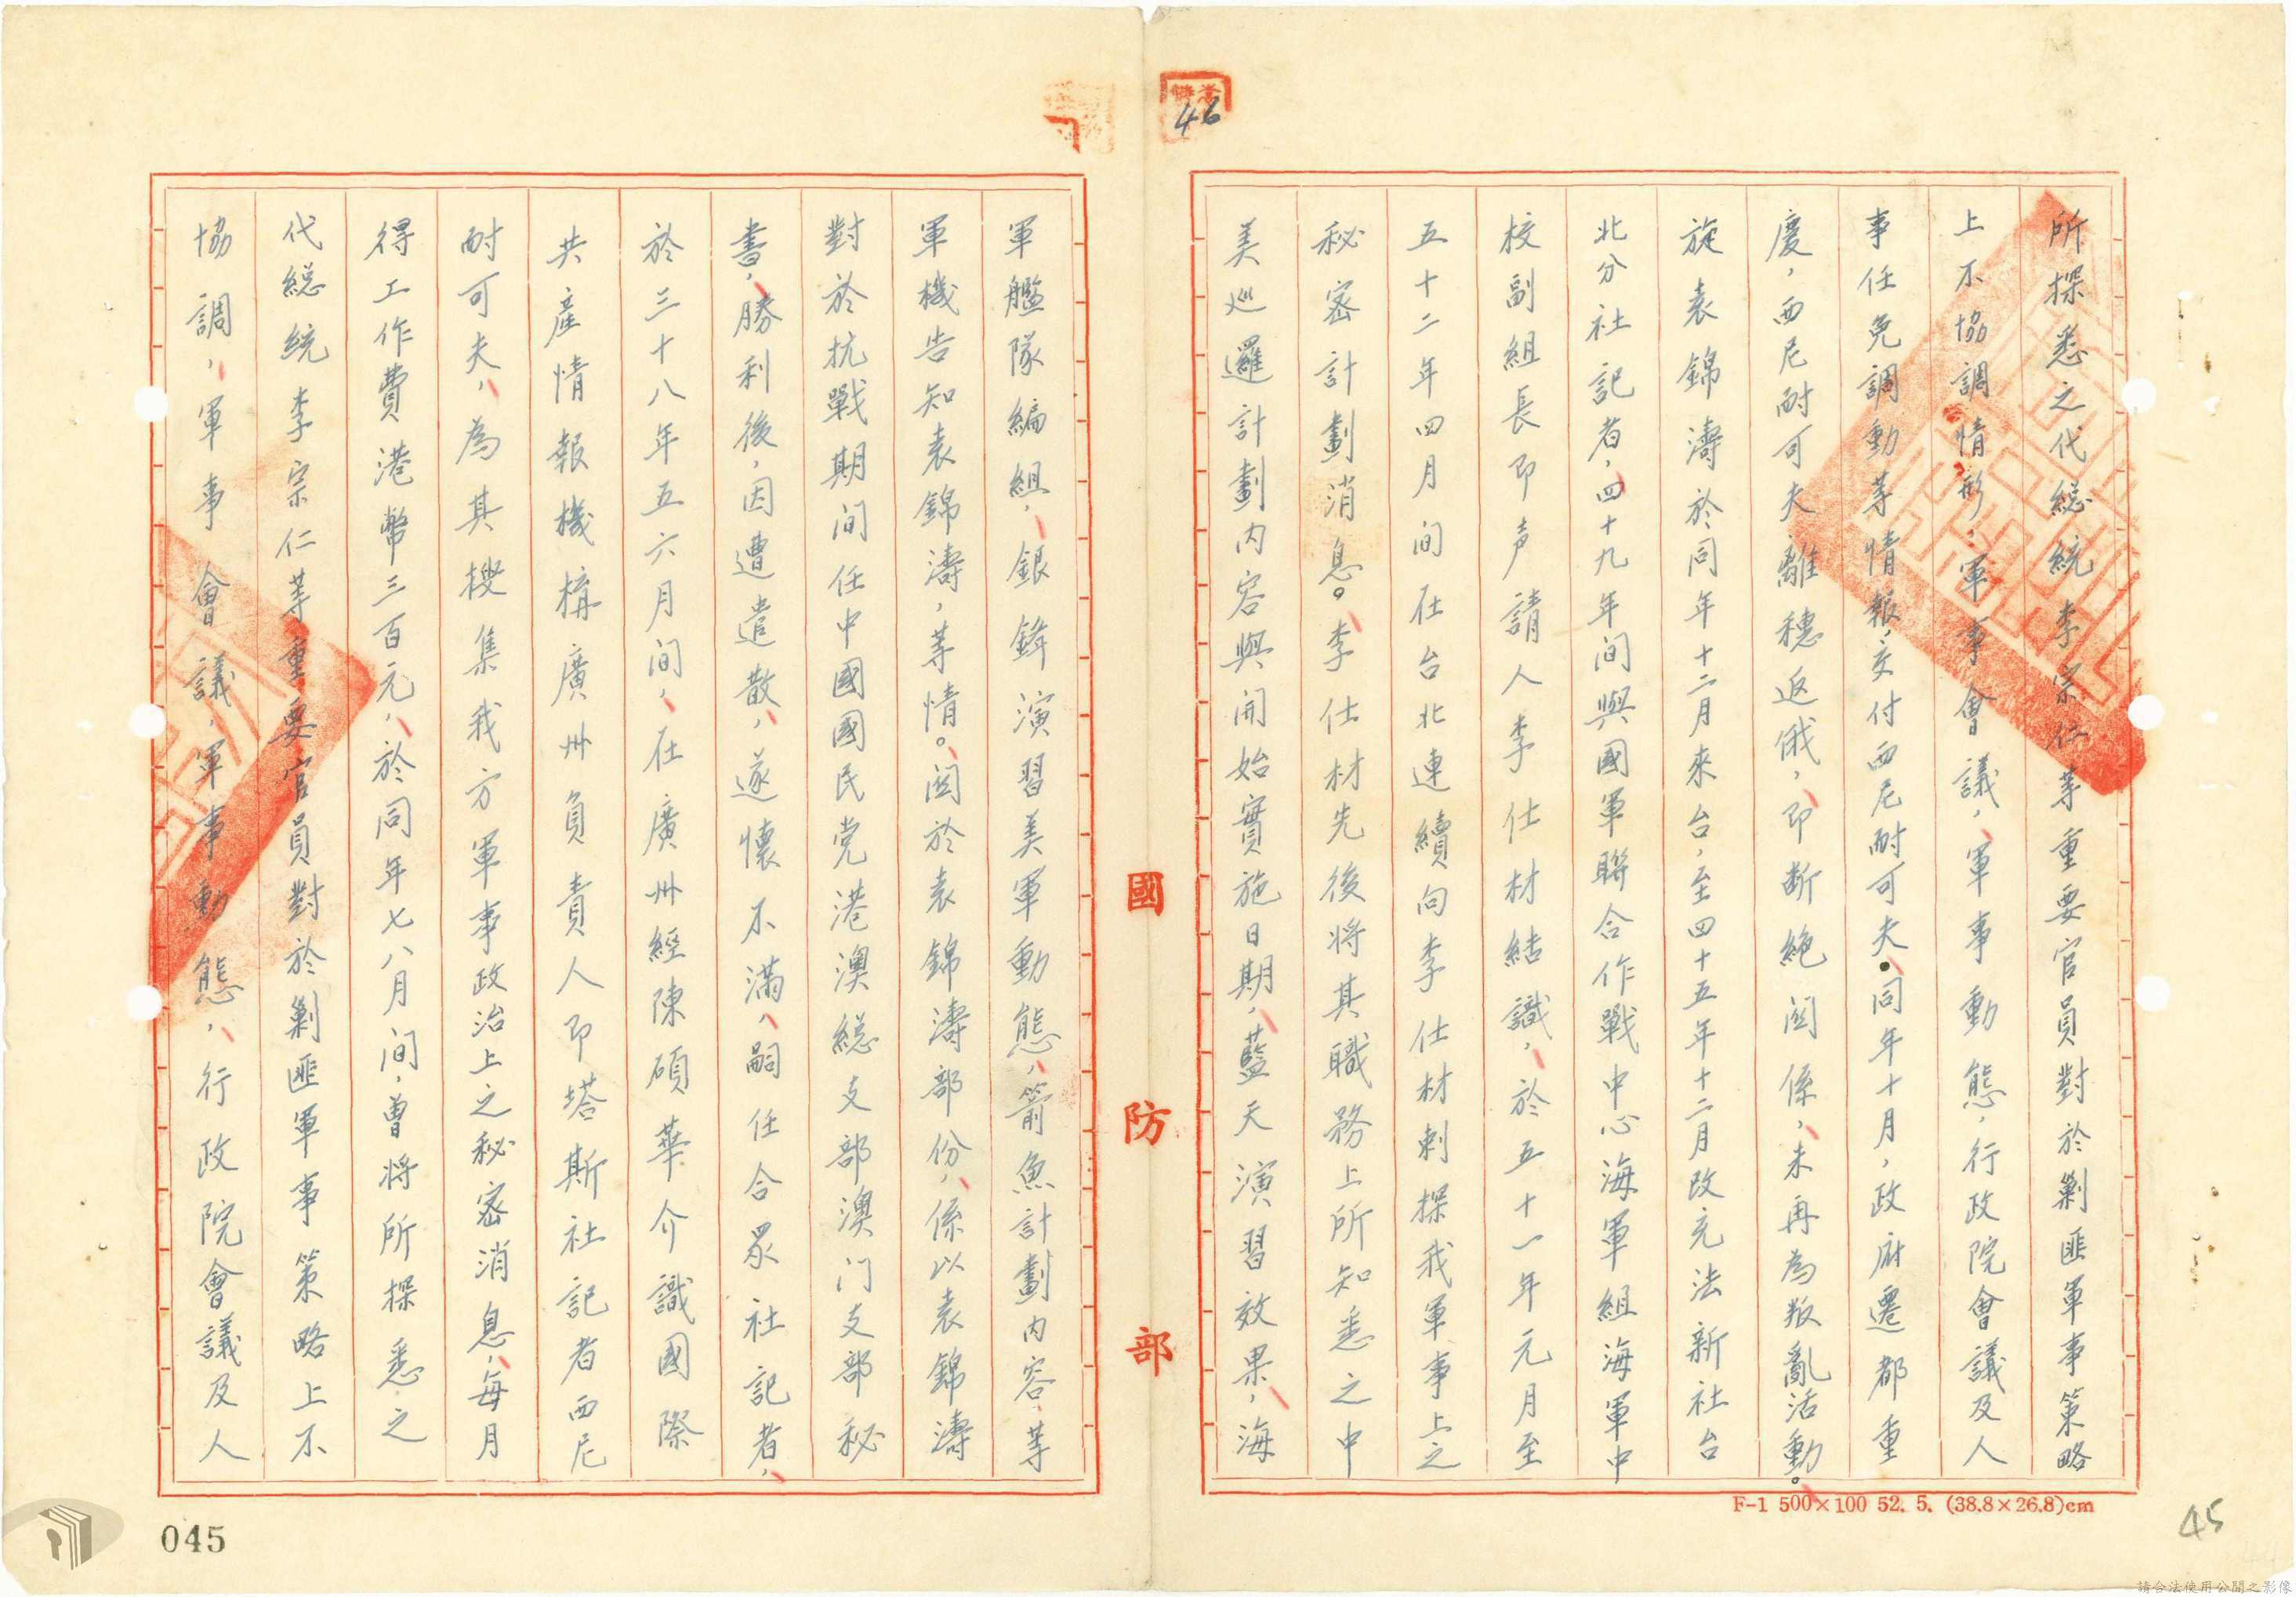 46
所探悉之代総統李宗仁等重要官員對於剿匪軍事策略
上不協調情形，軍事會議，軍事動態，行政院會議及人
事任免調動等情報，交付西尼耐可夫。同年十月，政府遷都重
慶，西尼耐可夫離穗返俄，即断絶関係，未再為叛亂活動。
施袁錦濤於同年十二月來台，至四十五年十二月改充法新社台
北分社記者，四十九年间與國軍聯合作戰中心海軍組海軍中
校副組長即声請人李仕材結識，於五十一年元月至
五十二年四月间在台北連續向李仕材刺探我軍事上之
秘密計劃消息。李仕材先後将其職務上所知悉之中
美巡邏計劃内容與開始實施日期，藍天演習效果，海
國防部
軍艦隊編組，銀鋒演習美軍動態，箭魚計劃内容，等
軍機告知袁錦濤，等情。関於袁錦濤部份，係以袁錦濤
對於抗戰期间任中國國民党港澳総支部澳门支部秘
書，勝利後，因遭遣散，遂懷不滿，嗣任合眾社記者，
於三十八年五六月间，在廣州經陳碩華介識國際
共産情報機構廣州負責人即塔斯社記者西尼
耐可夫，為其搜集我方軍事政治上之秘密消息，每月
得工作費港幣三百元，於同年七八月间，曾将所探悉之
代総統李宗仁等重要官員對於剿匪軍事策略上不
協調，軍事會議，軍事動態，行政院會議及人
F-1 500×100 52. 5. (38.8×26.8)cm
45
045
請合法使用公開之影像